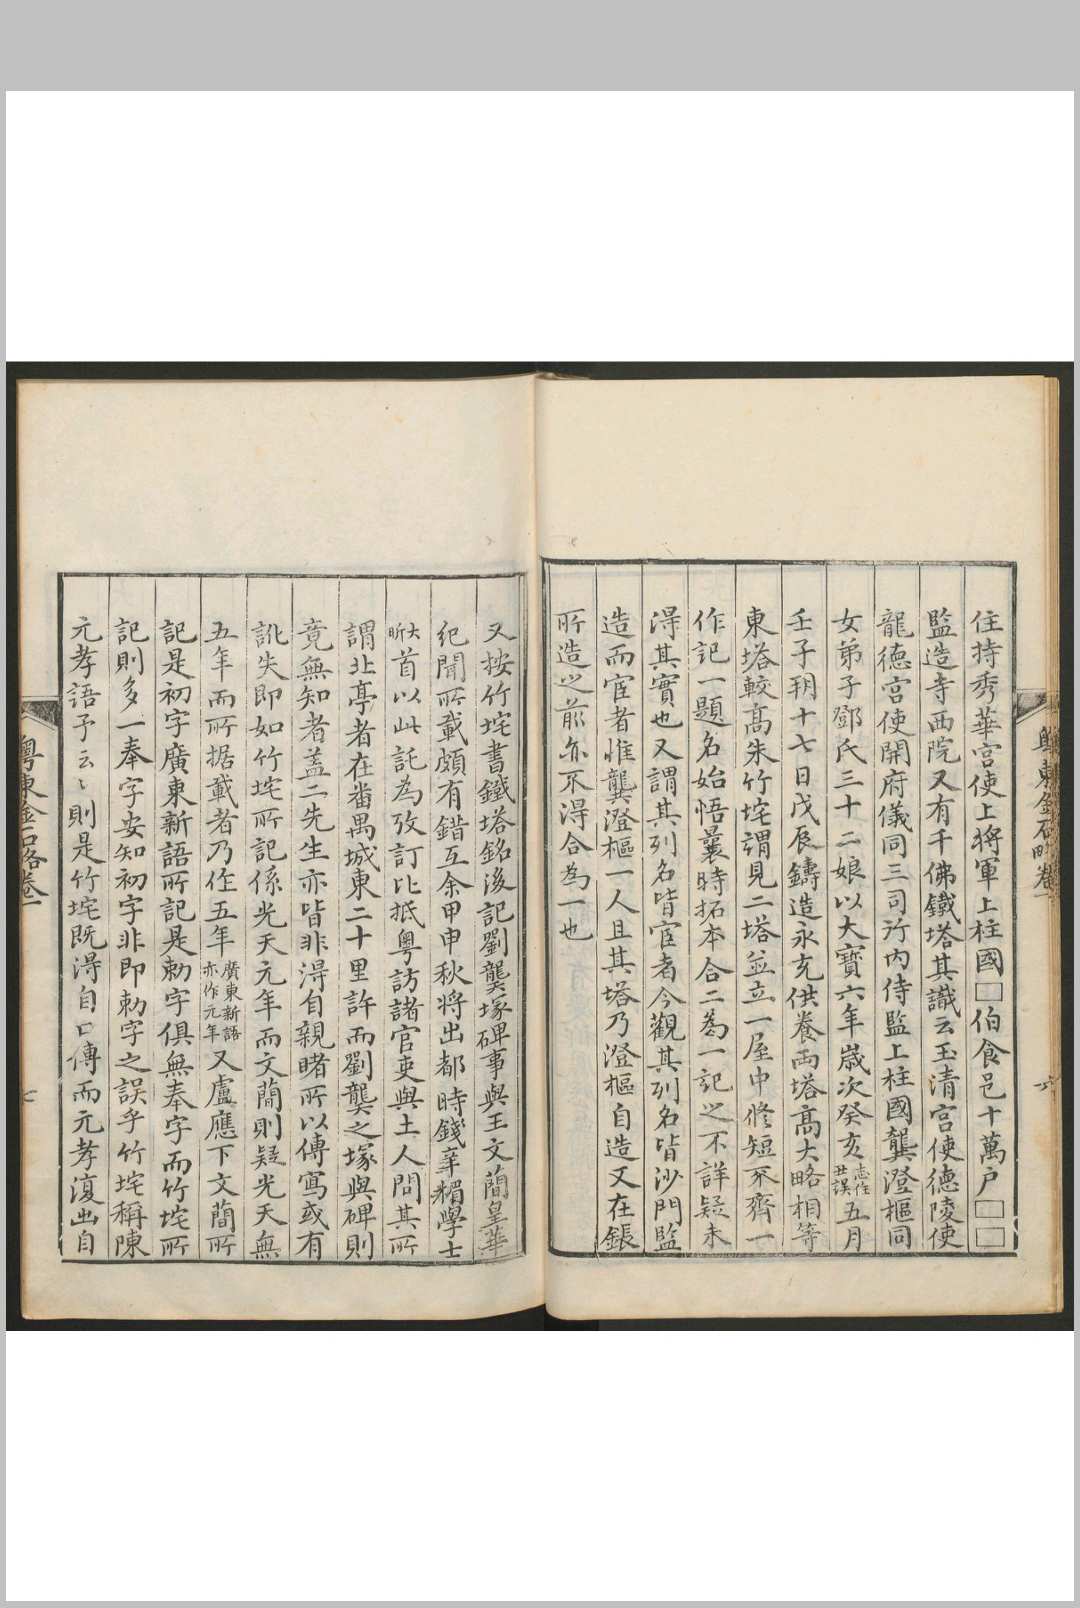 住持秀華宮使上將軍上柱國□伯食邑十萬户□□
監造寺西院又有千佛鐵塔其識云玉清宮使德陵使
龍德宮使開府儀同三司行內侍監上柱國龔澄樞同
女弟子鄧氏三十二娘以大寶六年歲次癸亥志任丑誤五月
壬子朔十七日戊辰鑄造永充供養兩塔高大略相等
東塔較高朱竹垞謂見二塔並立一屋中修短不齊一
作記一題名始悟曩時拓本合二為一記之不詳疑未
得其實也又謂其列名皆宦者今觀其列名皆沙門監
造而宦者惟龔澄樞一人且其塔乃澄樞自造又在鋹
所造之前亦不得合為一也
粵東金石略卷一
六
又按竹垞書鐵塔銘後記劉龑塚碑事與王文簡皇華
紀聞所載頗有錯互余甲申秋將出都時錢辛楣學士
大昕首以此託為攷訂比抵粵訪諸官吏與土人問其所
謂北亭者在畨禺城東二十里許而劉龑之塚與碑則
竟無知者盖二先生亦皆非得自親睹所以傳寫或有
訛失即如竹垞所記係光天元年而文簡則疑光天無
五年而所据載者乃作五年廣東新語亦作元年又盧應下文簡所
記是初字廣東新語所記是勅字俱無奉字而竹垞所
記則多一奉字安知初字非即勅字之誤乎竹垞稱陳
元孝語予云〻則是竹垞既得自口傳而元孝復出自
粵東金石略卷一
七